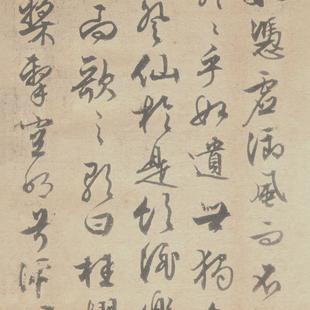 憑虛御風而不
々乎如遺世獨
登仙於是飲酒樂
而歌之歌曰桂櫂
槳擊空明兮泝